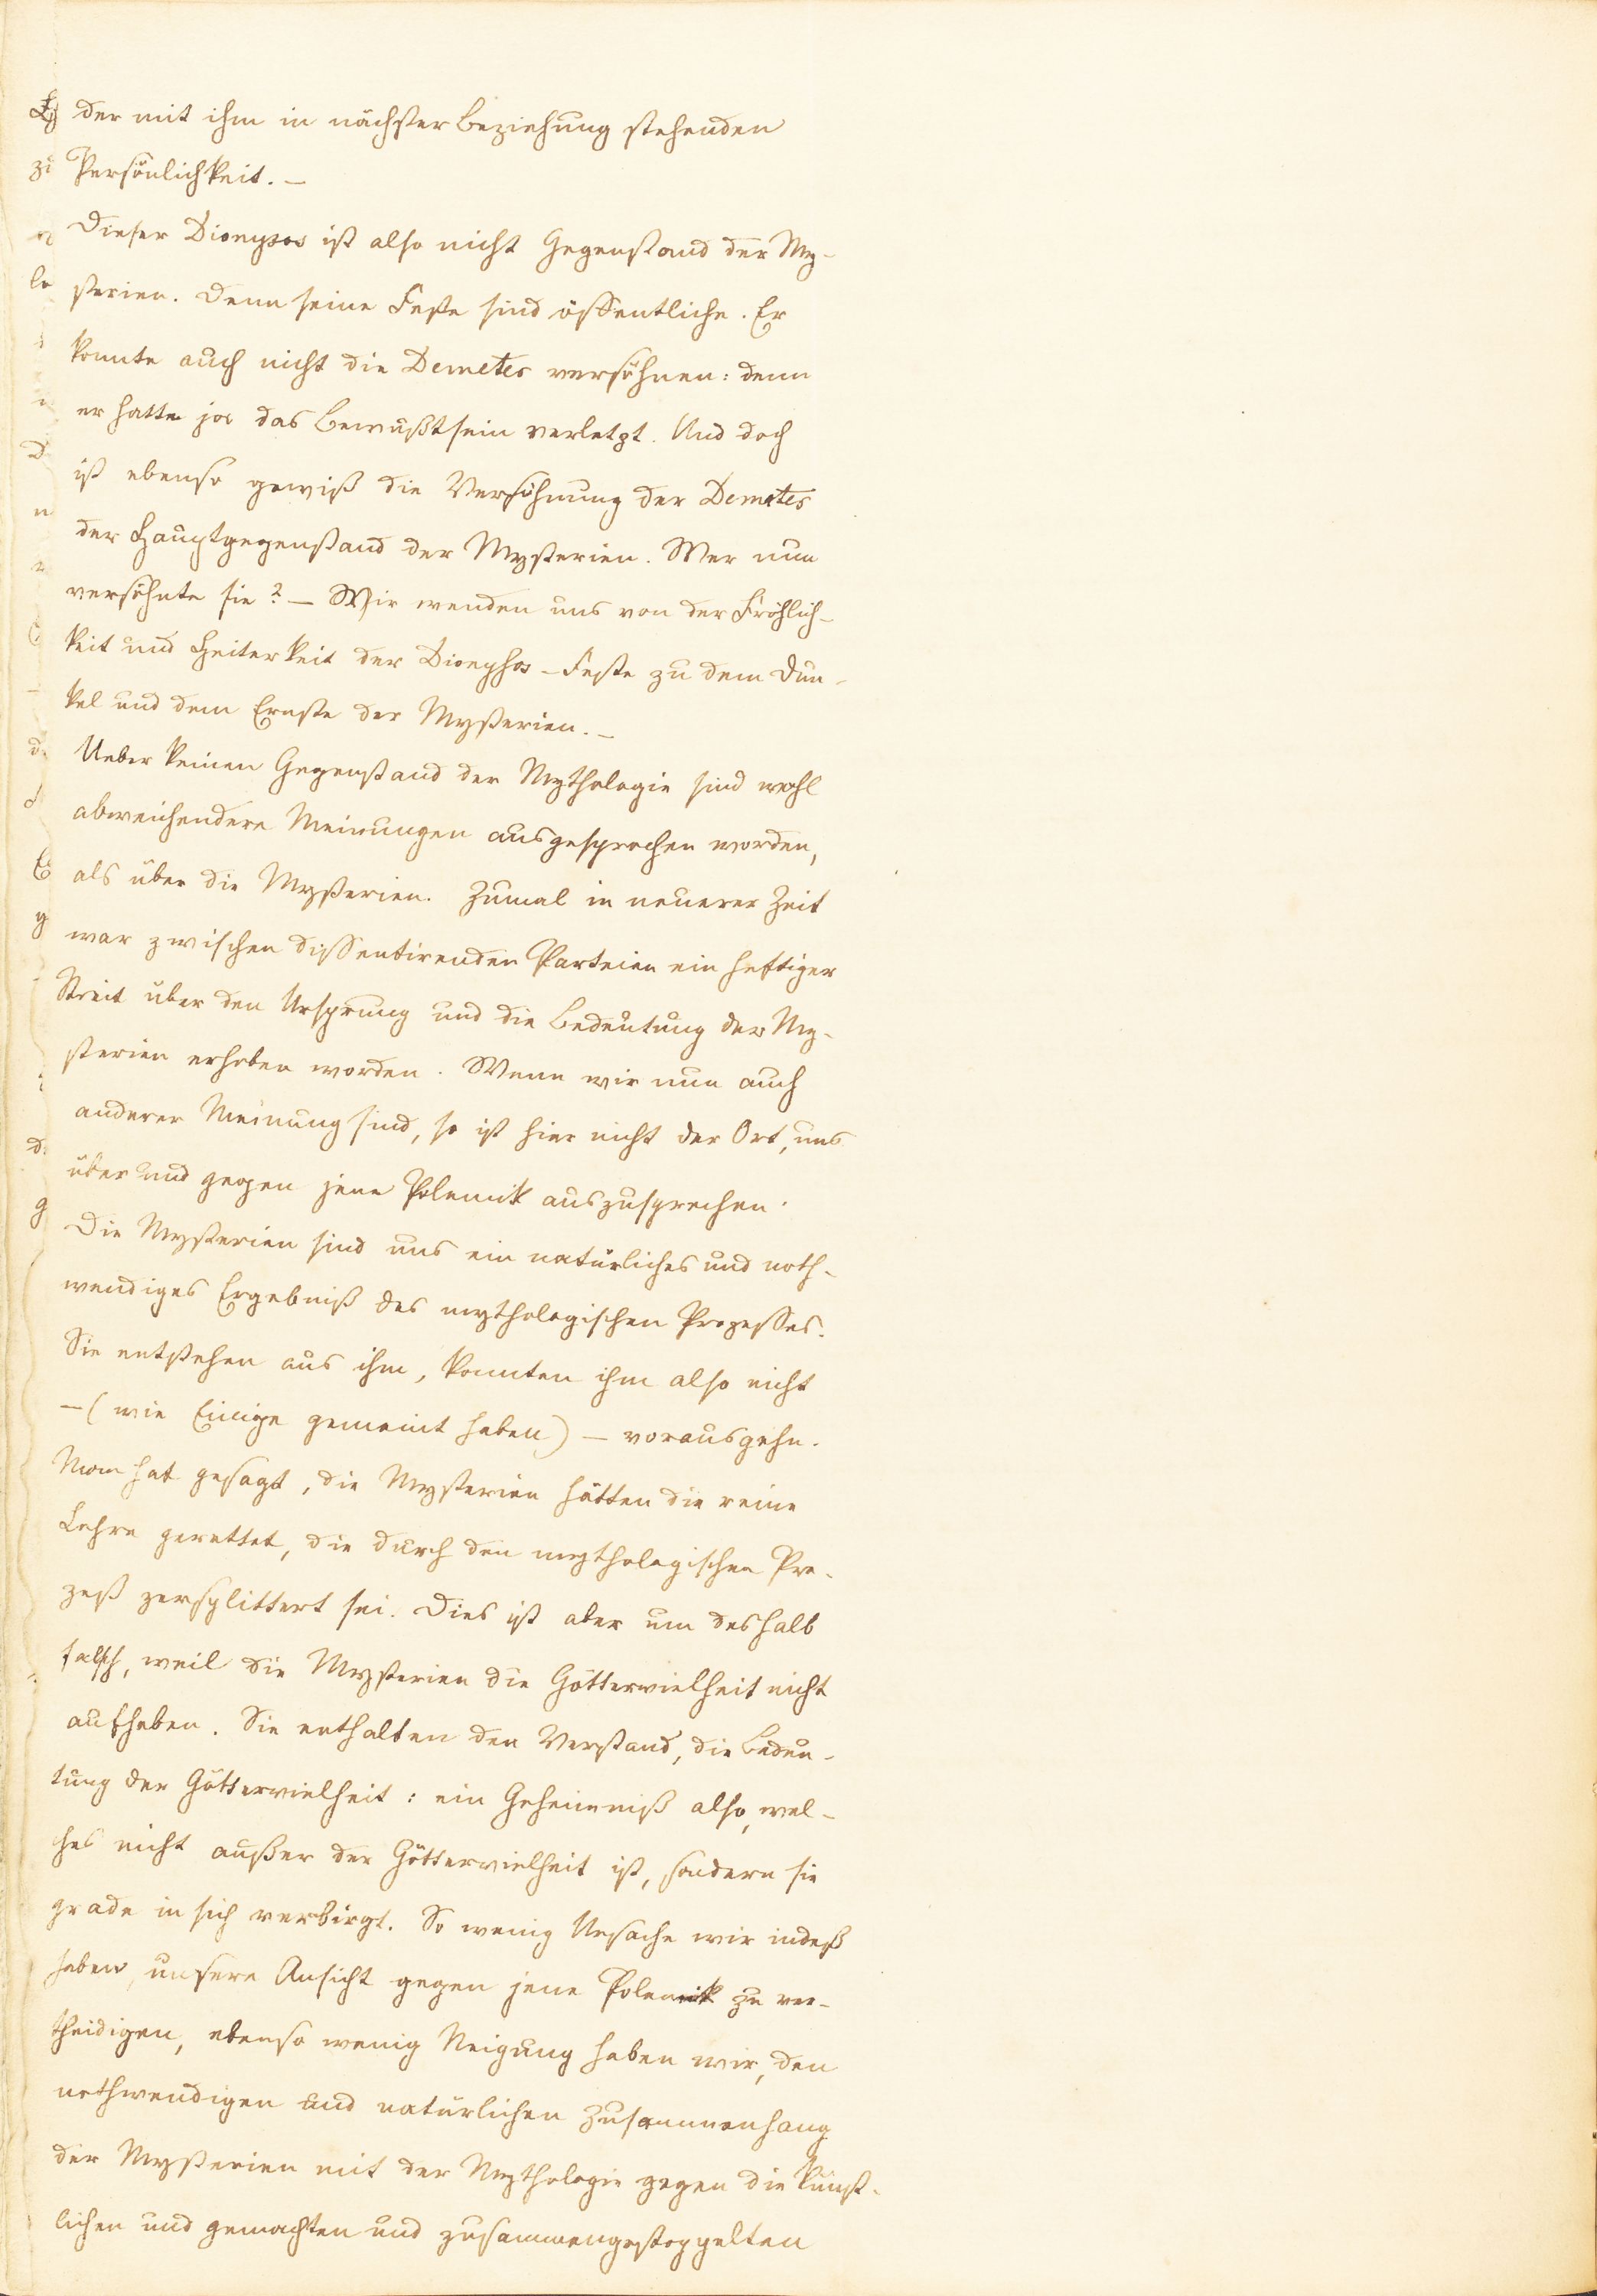 der mit ihm in nächster Beziehung stehenden
Persönlichkeit. —
Dieser Dionysos ist also nicht Gegenstand der My-
sterien. Denn seine Feste sind öffentliche. Er
konnte auch nicht die Demeter versöhnen: denn
er hatte ja das Bewußtsein verletzt. Und doch
ist ebenso gewiß die Versöhnung der Demeter
der Hauptgegenstand der Mysterien. Wer nun
versöhnte sie? — Wir wenden uns von der Fröhlich-
keit und Heiterkeit der Dionysos-Feste zu dem Dun-
kel und dem Ernste der Mysterien. —
Ueber keinen Gegenstand der Mythologie sind wohl
abweichendere Meinungen ausgesprochen worden,
als über die Mysterien. Zumal in neuerer Zeit
war zwischen dissentirenden Parteien ein heftiger
Streit über den Ursprung und die Bedeutung der My-
sterien erhoben worden. Wenn wir nun auch
anderer Meinung sind, so ist hier nicht der Ort, uns
über und gegen jene Polemik auszusprechen.
Die Mysterien sind uns ein natürliches und noth-
wendiges Ergebniß des mythologischen Prozesses.
Sie entstehen aus ihm, konnten ihm also nicht
— (wie Einige gemeint haben) — vorausgehn.
Man hat gesagt, die Mysterien hätten die reine
Lehre gerettet, die durch den mythologischen Pro-
zeß zersplittert sei. Dies ist aber um deshalb
falsch, weil die Mysterien die Göttervielheit nicht
aufheben. Sie enthalten den Verstand, die Bedeu-
tung der Göttervielheit: ein Geheimniß also, wel-
ches nicht außer der Göttervielheit ist, sondern sie
grade in sich verbirgt. So wenig Ursache wir indeß
haben, unsere Ansicht gegen jene Polemik zu ver-
theidigen, ebenso wenig Neigung haben wir, den
nothwendigen und natürlichen Zusammenhang
der Mysterien mit der Mythologie gegen die künst-
lichen und gemachten und zusammengestoppelten